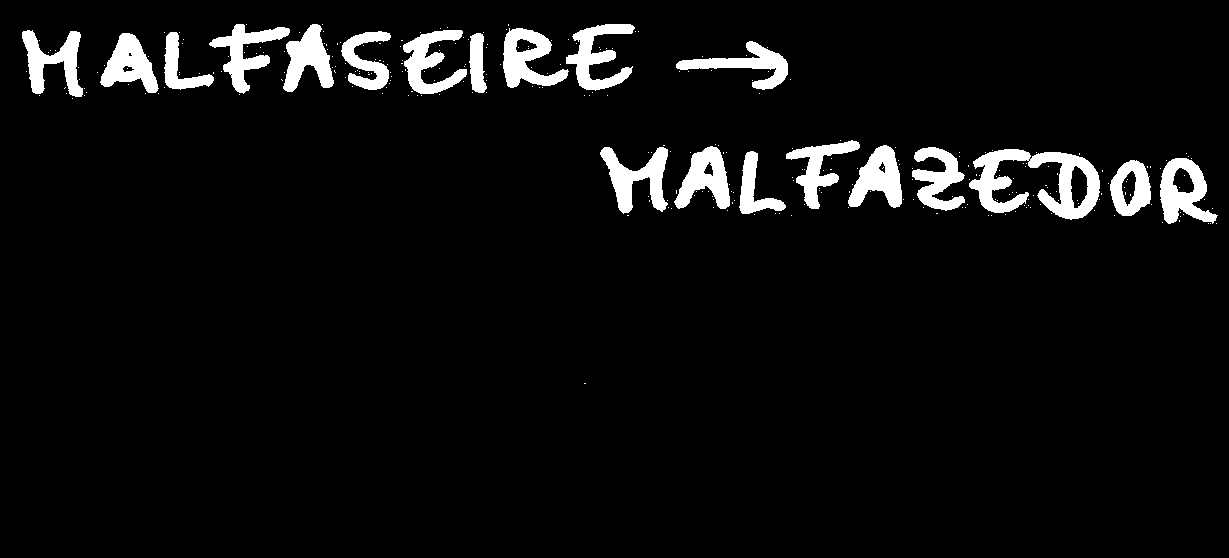 MALFASEIRE →
MALFAZEDOR